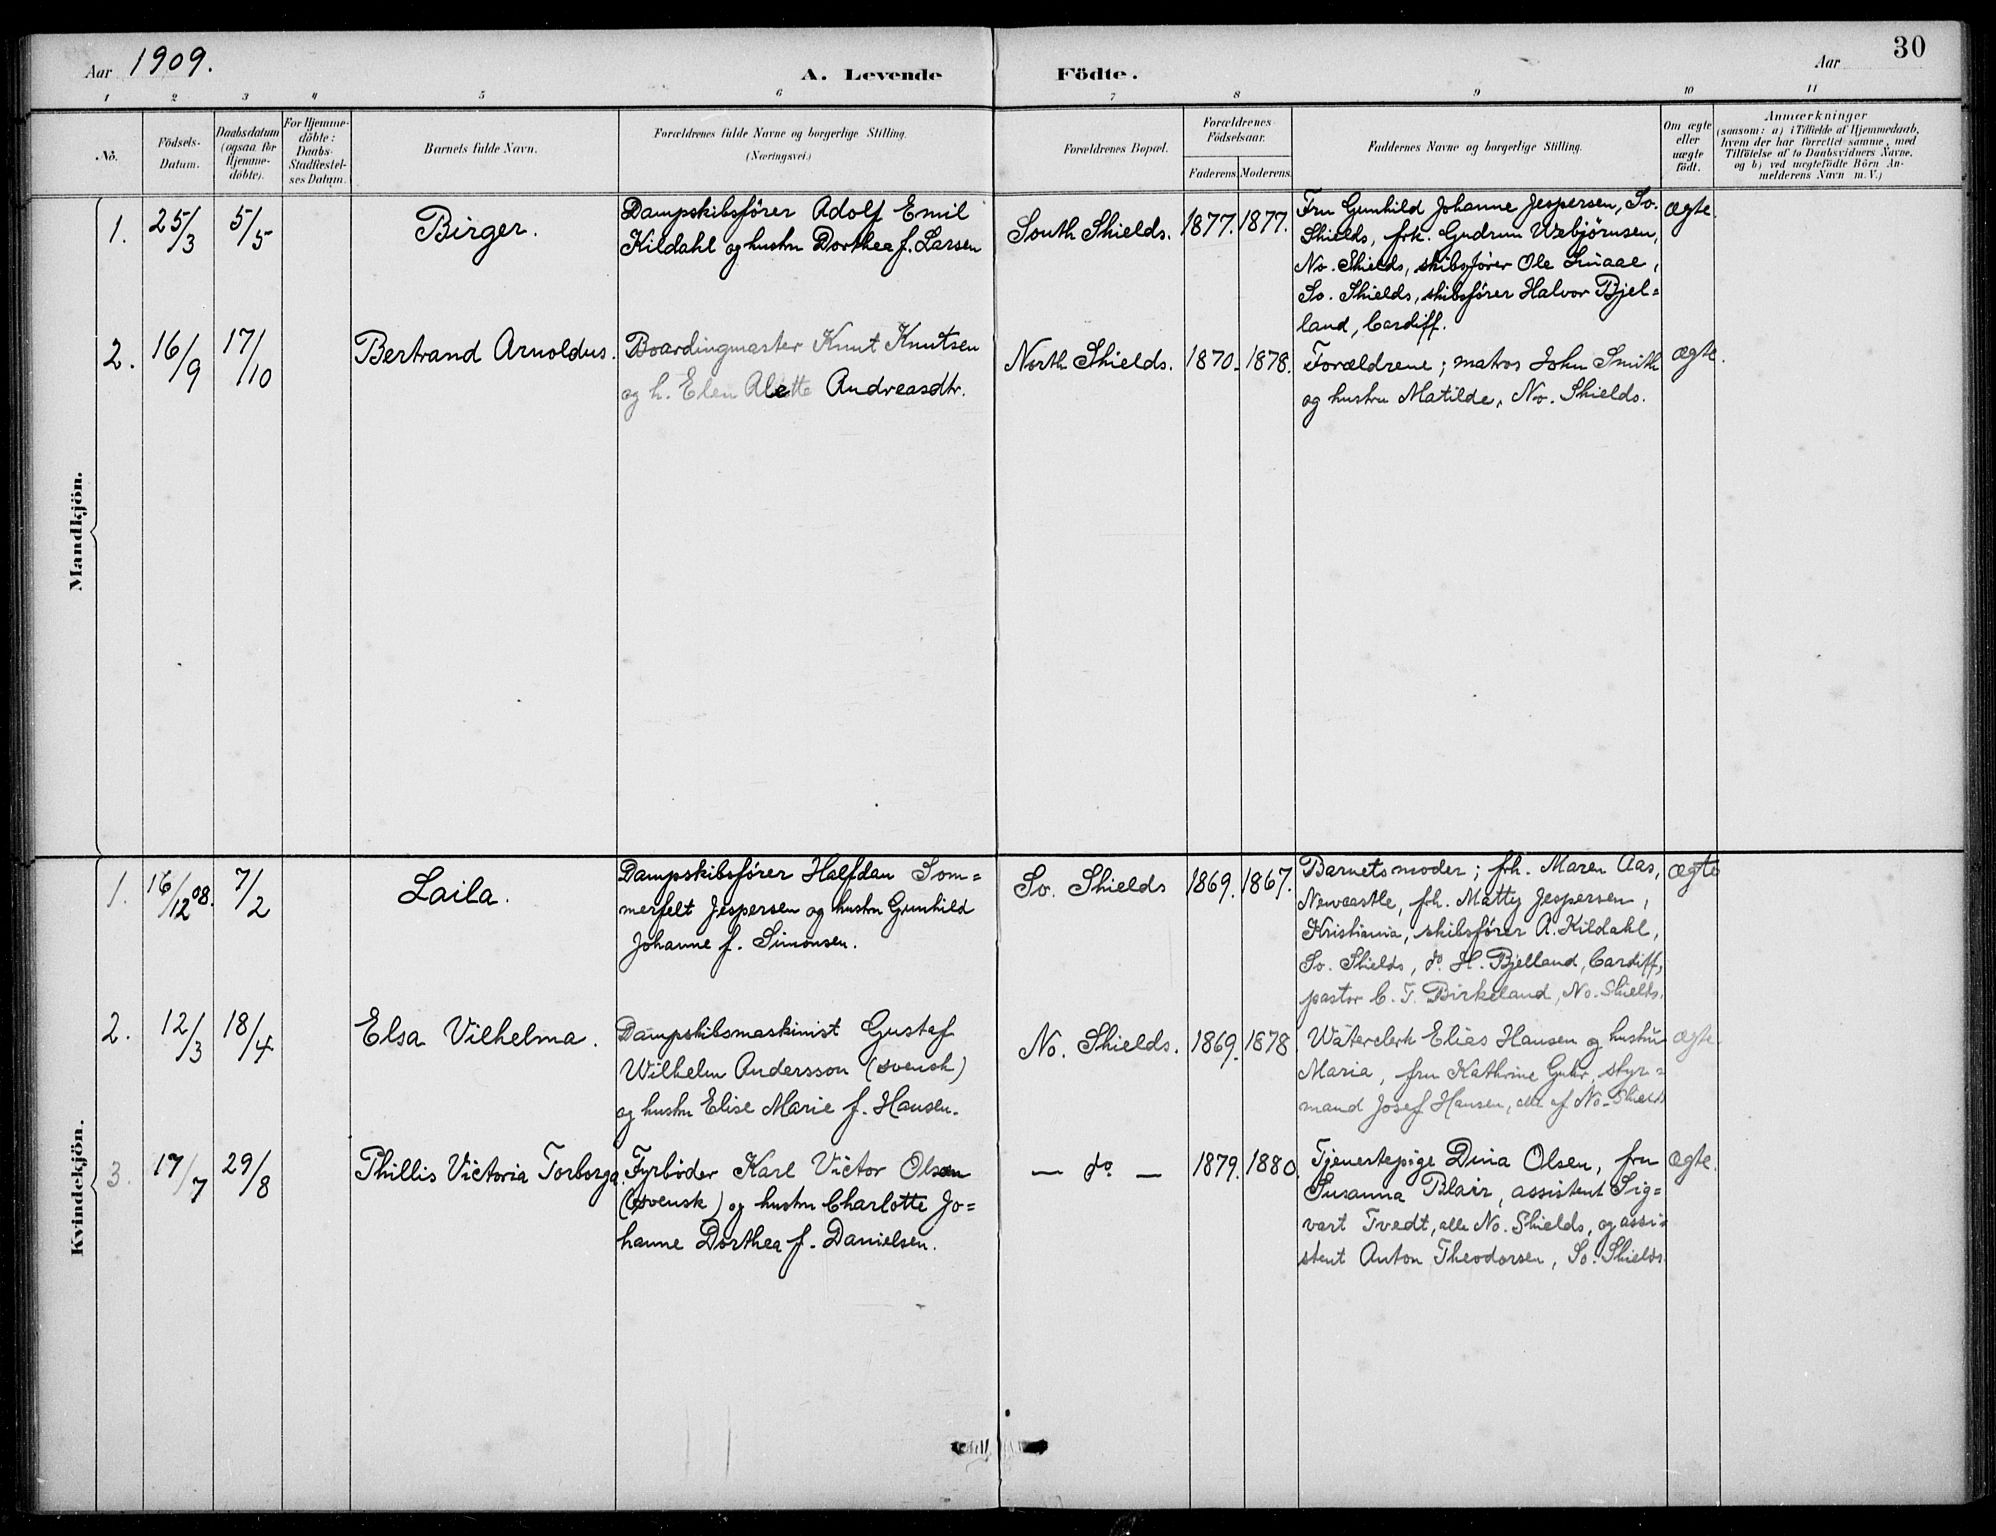 Aar 1909.
A. Levende Födte.
Aar
30
1 2 3 4 5 6 7 8 9 10 11
Nö.
Födsels-
Datum.
Daabsdatum
(ogsaa for
Hjemme-
döbte).
For Hjemme-
döbte:
Daabs-
Stadfæstel-
ses Datum.
Barnets fulde Navn.
Forældrenes fulde Navne og borgerlige Stilling.
(Næringsvei.)
Forældrenes Bopæl.
Forældrenes
Födselsaar.
Faderens.
Moderens.
Faddernes Navne og borgerlige Stilling.
Om ægte
eller
uægte
födt.
Anmærkninger
(saasom: a) i Tilfælde af Hjemmedaab,
hvem der har forrettet samme, med
Tilföielse af to Daabsvidners Navne,
og b) ved uægtefödte Börn An-
melderens Navn m. V.)
Mandkjön.
1.
25/3
5/5
Birger.
Dampskibsfører Adolf Emil
Kildahl og hustru Dorthea f. Larsen
South Shields.
1877.
1877.
Fru Gunhild Johanne Jespersen, So.
Shields, frk. Gudrun Webjørnsen,
No. Shields, skibsfører Ole
So. Shields, skibsfører Halvor Bjel=
land, Cardiff.
ægte.
2.
16/9
17/10
Bertrand Arnoldus.
Boardingmaster Knut Knutsen
og h. Elen Alette Andreasdtr.
North Shields.
1870.
1878.
Forældrene; matros John Smith
og hustru Matilde, No. Shields.
ægte.
Kvindekjön.
1.
16/12 08.
7/2
Laila.
Dampskibsfører Halfdan Som=
merfelt Jespersen og hustru Gunhild
Johanne f. Simonsen.
So. Shields
1869.
1867.
Barnets moder; frk. Maren Aas,
Newcastle, frk. Matty Jespersen,
Kristiania, skibsfører A. Kildahl,
So. Shields, do. H. Bjelland, Cardiff,
pastor C. T. Birkeland, No. Shields.
ægte
2.
12/3
18/4
Elsa Vilhelma.
Dampskibsmaskinist Gustaf
Wilhelm Andersson (svensk)
og hustru Elise Marie f. Hansen.
No. Shields.
1869.
1878
Waterclerk Elias Hansen og hustru
Maria, fru Kathrine Guhr, styr=
mand Josef Hansen, alle af No. Shields
ægte.
3.
17/7
29/8
Phillis Victoria Torborga.
Fyrbøder Karl Victor Olsen
(svensk) og hustru Charlotte Jo=
hanne Dorthea f. Danielsen.
— do —
1879.
1880.
Tjenestepige Dina Olsen, fru
Susanna Blair, assistent Sig=
vart Tvedt, alle No. Shields, og assi=
stent Anton Theodorsen, So. Shields.
ægte.